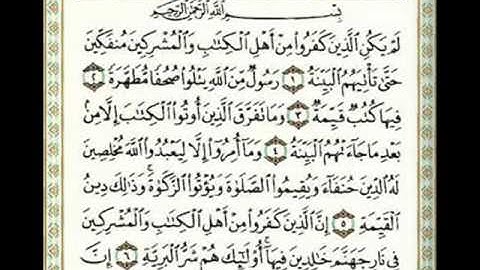 بِسْمِ اللَّهِ الرَّحْمَٰنِ الرَّحِيمِ
لَمْ يَكُنِ الَّذِينَ كَفَرُوا مِنْ أَهْلِ الْكِتَابِ وَالْمُشْرِكِينَ مُنفَكِّينَ
حَتَّىٰ تَأْتِيَهُمُ الْبَيِّنَةُ ١ رَسُولٌ مِّنَ اللَّهِ يَتْلُوا صُحُفًا مُّطَهَّرَةً ٢
فِيهَا كُتُبٌ قَيِّمَةٌ ٣ وَمَا تَفَرَّقَ الَّذِينَ أُوتُوا الْكِتَابَ إِلَّا مِن
بَعْدِ مَا جَاءَتْهُمُ الْبَيِّنَةُ ٤ وَمَا أُمِرُوا إِلَّا لِيَعْبُدُوا اللَّهَ مُخْلِصِينَ
لَهُ الدِّينَ حُنَفَاءَ وَيُقِيمُوا الصَّلَوٰةَ وَيُؤْتُوا الزَّكَوٰةَ وَذَٰلِكَ دِينُ
الْقَيِّمَةِ ٥ إِنَّ الَّذِينَ كَفَرُوا مِنْ أَهْلِ الْكِتَابِ وَالْمُشْرِكِينَ
فِي نَارِ جَهَنَّمَ خَالِدِينَ فِيهَا أُولَٰئِكَ هُمْ شَرُّ الْبَرِيَّةِ ٦ إِنَّ